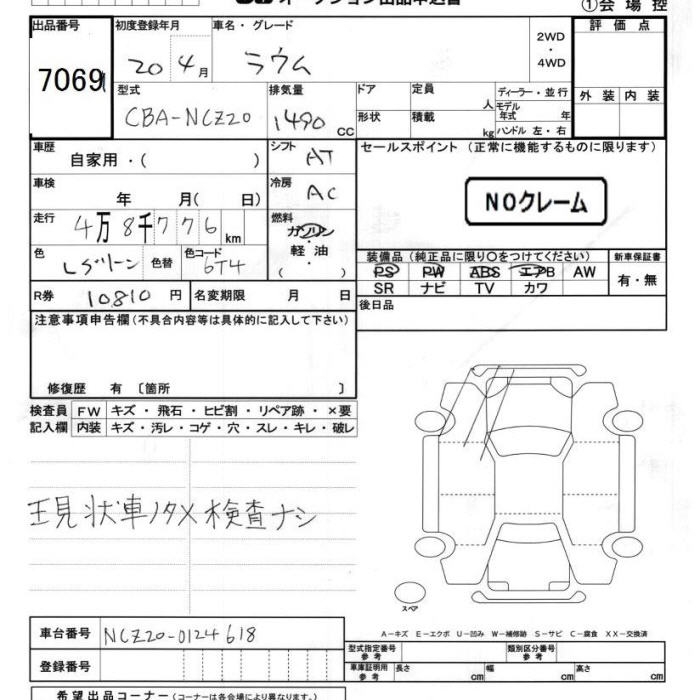 オークション出品申込書
①会場控
出品番号 初度登録年月 車名・グレード 2WD・4WD 評価点
7069 20 4月 ラウム
型式 排気量 ドア 定員 人 ディーラー・並行 外装 内装
CBA-NCZ20 1490 CC 形状 積載 kg モデル年式 年
ハンドル 左・右
車歴 自家用・( ) シフト AT セールスポイント (正常に機能するものに限ります)
車検 年 月( 日) 冷房 AC NOクレーム
走行 4万8千776km 燃料 ガソリン・軽油・( )
色 Lグリーン 色替 色コード 6T4
装備品 (純正品に限り○をつけてください) 新車保証書
PS PW ABS エアB AW 有・無
SR ナビ TV カワ
R券 10810円 名変期限 月 日 後日品
注意事項申告欄(不具合内容等は具体的に記入して下さい)
修復歴 有 〔箇所 〕
検査員 FW キズ・飛石・ヒビ割・リペア跡・×要
記入欄 内装 キズ・汚レ・コゲ・穴・スレ・キレ・破レ
現状車ノタメ検査ナシ
スペア
A-キズ E-エクボ U-凹み W-補修跡 S-サビ C-腐食 XX-交換済
車台番号 NCZ20-0124618
型式指定番号 参考 類別区分番号 参考
登録番号 車庫証明用 参考 長さ cm 幅 cm 高さ cm
希望出品コーナー(コーナーは各会場により異なります。)